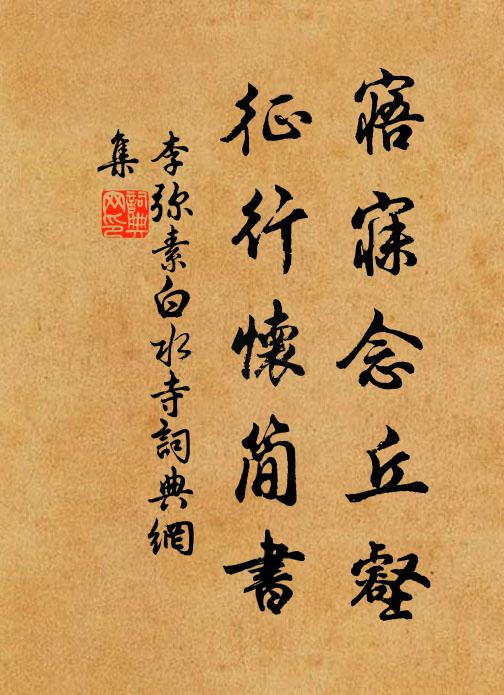 寤寐念丘壑
征行懷簡書
李弥素白水寺詞典網
集
詞典网印